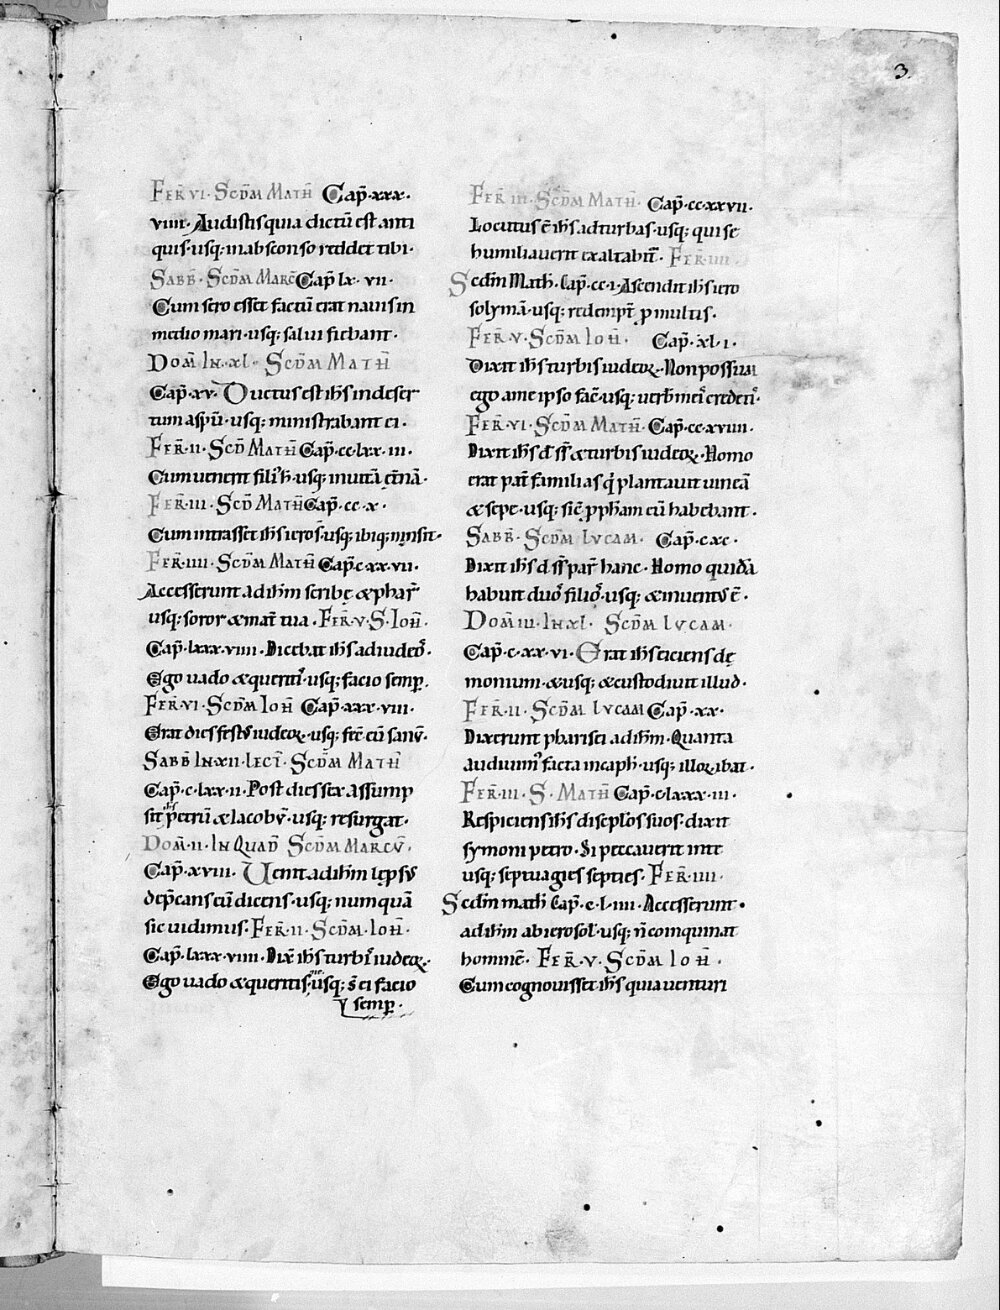 3
FER̄ VI · SCD̄M MATH̄ Cap̄ · xxx ·
viiii · Audistis quia dictū est anti
quis · usq; in absconso reddet tibi ·
SABB̄ · SCD̄M MARC̄ Cap̄ lx · vii ·
Cum sero esset factū erat navis in
medio mari · usq; salvi fiebant ·
DOM̄ IN · XL · SCD̄M MATH̄
Cap̄ · xv · Ductus est ih̄s in deser
tum a sp̄u · usq; ministrabant ei ·
FER̄ · II · SCD̄ MATH̄ Cap̄ · cc · lxx · iii ·
Cum venerit fili' h̄ · usq; in vitā et̄nā ·
FER̄ · III · SCD̄ MATH̄ Cap̄ · cc · x ·
Cum intrasset ih̄s ierosˀ · usq; ibiq; mansit ·
FER̄ · IIII · SCD̄M MATH̄ Cap̄ · c · xx · vii ·
Accesserunt ad ih̄m scribę & phar̄
usq; soror & mat̄ mea · FER̄ · V · S · IOH̄ ·
Cap̄ · lxxx · viiii · Dicebat ih̄s ad iudeoˀ ·
Ego vado & queretiˀ · usq; facio semp̱ ·
FER̄ VI · SCD̄M IOH̄ Cap̄ · xxx · viii ·
Erat dies festꝰ iudeoꝝ · usq; fec̄ eū sanꝰ ·
SABB̄ IN · XII · LECT̄ · SCD̄M MATH̄
Cap̄ · c · lxx · ii · Post dies sex assump
sit ih̄s petrū & Iacobꝰ · usq; resurgat ·
DOM̄ · II · IN QUAD̄ SCD̄M MARCꝰ ·
Cap̄ · xviii · Venit ad ih̄m lęp̱sꝰ
dep̄cans eū dicens · usq; numquā
sic vidimus · FER̄ · II · SCD̄M · IOH̄ ·
Cap̄ · lxxx · viiii · Dix̄ ih̄s turbiˀ iudeoꝝ ·
Ego vado & queritis me · usq; q̄ ei facio
semp̱ ·
FER̄ III · SCD̄M MATH̄ · Cap̄ · cc · xxvii ·
Locutus ē ih̄s ad turbas · usq; qui se
humiliaverit exaltabit̄ · FER̄ · IIII ·
Scd̄m Math̄ · Cap̄ · cc · i · Ascendit ih̄s iero
solymā · usq; redempt̄ p̱ multis ·
FER̄ · V · SCD̄M · IOH̄ · Cap̄ · xl · i ·
Dixit ih̄s turbis iudeoꝝ · Non possum
ego a me ipso fac̄e · usq; verbˀ meiˀ credetiˀ ·
FER̄ · VI · SCD̄M MATH̄ · Cap̄ · cc · xviiii ·
Dixit ih̄s d̄ s̄s̄ & turbis iudeoꝝ · Homo
erat pat̄ familias q̇ plantavit vineā
& sepe · usq; sic̄ p̱ph̄am eū habebant ·
SABB̄ · SCD̄M LVCAM · Cap̄ · c · xc ·
Dixit ih̄s d̄ s̄s̄ par̄ hanc · Homo quidā
habuit duoˀ filioˀ · usq; & inventꝰ ē ·
DOM̄ III · IN XL · SCD̄M LVCAM ·
Cap̄ · c · xx · vi · Erat ih̄s eiciens dę
monium · & usq; & custodiunt illud ·
FER̄ · II · SCD̄M LVCAM Cap̄ · xx ·
Dixerunt pharisei ad ih̄m · Quanta
audivimˀ facta in caph̄ · usq; illoꝝ ibat ·
FER̄ · III · S · MATH̄ Cap̄ · c lxxx · iii ·
Respiciens ih̄s discipl̄os suos · dixit
symoni petro · Si peccaverit in te
usq; septuagies septies · FER̄ · IIII ·
Scd̄m math̄ Cap̄ · c · l · iiii · Accesserunt ·
ad ih̄m ab ierosolˀ · usq; n̄ coinquinat
hominē · FER̄ · V · SCD̄M IOH̄ ·
Cum cognovisset ih̄s quia venturi